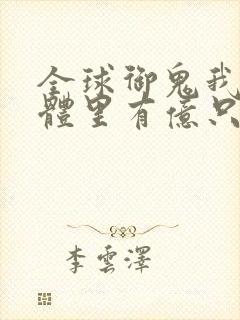 全球御鬼我
體里有億只
李雲澤